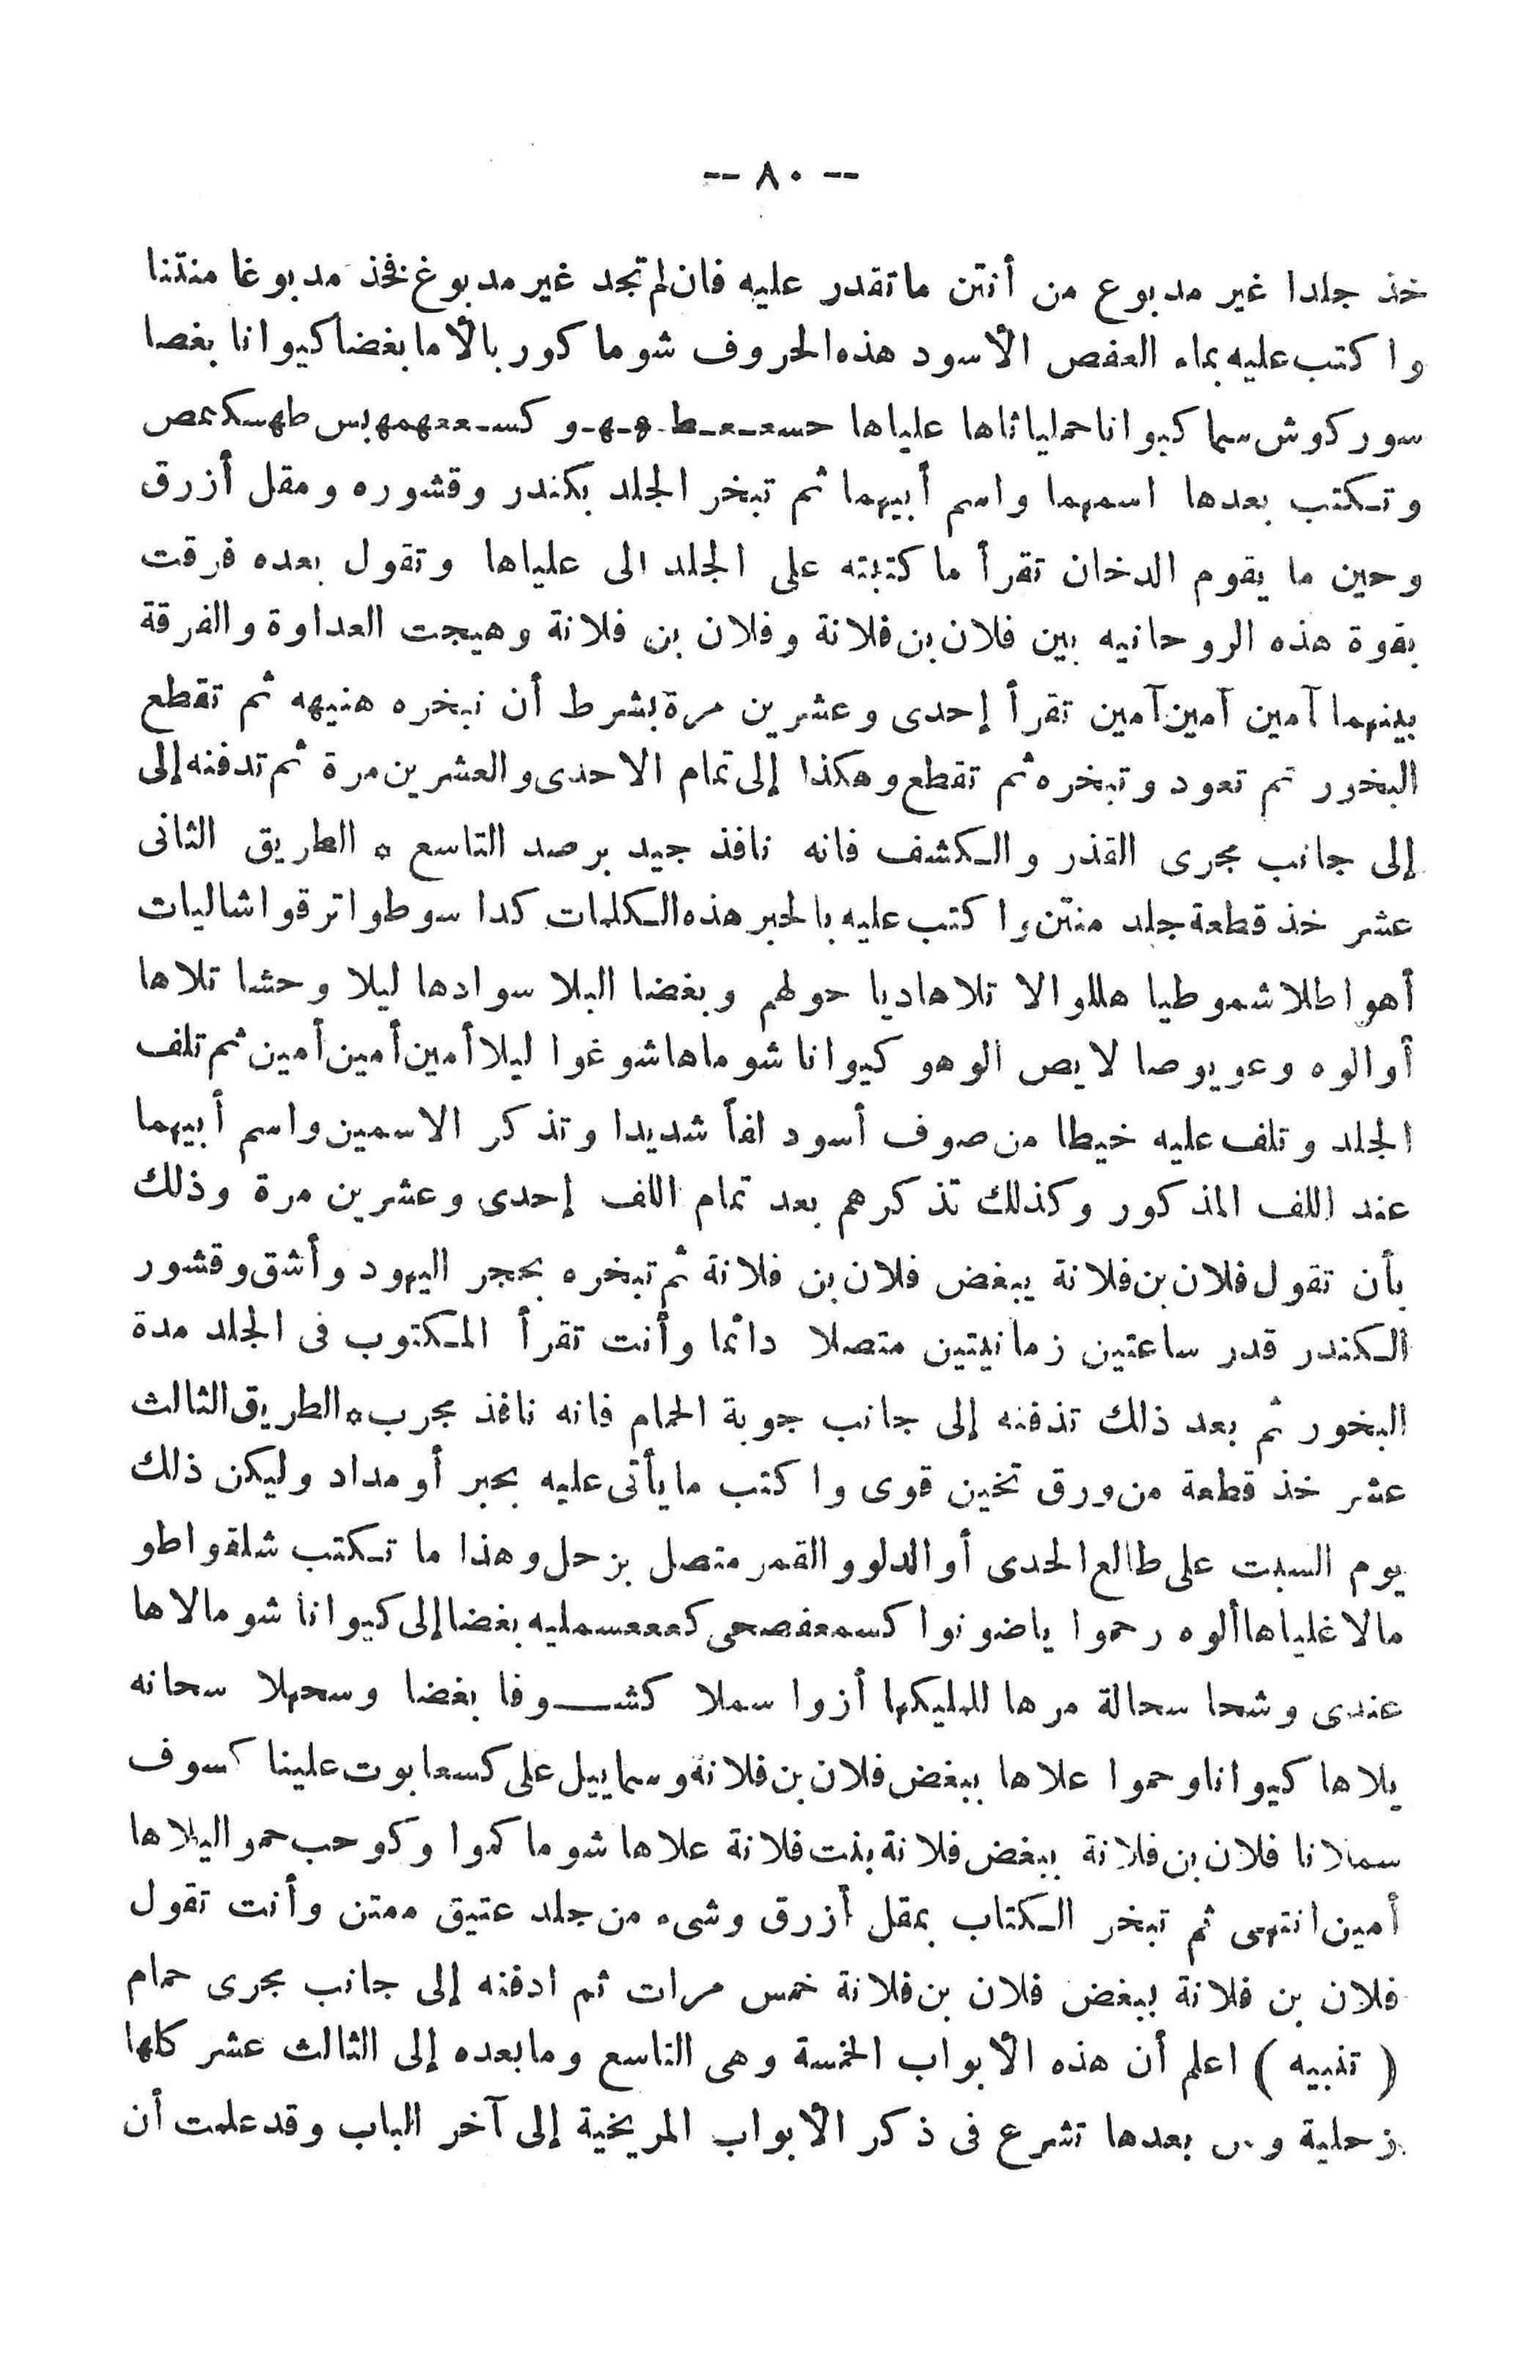 -- ٨٠ --
خذ جلدا غير مدبوع من أنتن ماتقدر عليه فان لم تجد غير مدبوغ فخذ مدبوغا منتنا
واكتب عليه بماء العفص الأسود هذه الحروف شوما كور بالأما بغضا كيوانا بغصا
سوركوش سما كيوانا حمليا ثاها علياها حسعـعـط‍ـهـهـو كسـععهمهبس طهسكعص
وتكتب بعدها اسمهما واسم أبيهما ثم تبخر الجلد بكندر وقشوره ومقل أزرق
وحين ما يقوم الدخان تقرأ ماكتبته على الجلد الى علياها وتقول بعده فرقت
بقوة هذه الروحانيه بين فلان بن فلانة وفلان بن فلانة وهيجت العداوة والفرقة
بينهما آمين آمين آمين تقرأ إحدى وعشرين مرة بشرط أن نبخره هنيهه ثم تقطع
البخور ثم تعود وتبخره ثم تقطع وهكذا إلى تمام الاحدى والعشرين مرة ثم تدفنه إلى
إلى جانب مجرى القذر والكشف فانه نافذ جيد برصد التاسع * الطريق الثانى
عشر خذ قطعة جلد منتن واكتب عليه بالحبر هذه الكلمات كدا سوطوا ترقوا شاليات
أهوا طلا شموطيا هللوالا تلاهاديا حولهم وبغضا البلا سوادها ليلا وحشا تلاها
أوالوه وعويوصا لايص الوهو كيوانا شوماها شوغوا ليلا أمين أمين أمين ثم تلف
الجلد وتلف عليه خيطا من صوف أسود لفاً شديدا وتذكر الاسمين واسم أبيهما
عند اللف المذكور وكذلك تذكرهم بعد تمام اللف إحدى وعشرين مرة وذلك
بأن تقول فلان بن فلانة يبغض فلان بن فلانة ثم تبخره بحجر اليهود وأشق وقشور
الكندر قدر ساعتين زمانيتين متصلا دائما وأنت تقرأ المكتوب فى الجلد مدة
البخور ثم بعد ذلك تذفنه إلى جانب جوبة الحمام فانه نافذ مجرب * الطريق الثالث
عشر خذ قطعة من ورق تخين قوى واكتب مايأتى عليه بحبر أو مداد وليكن ذلك
يوم السبت على طالع الجدى أو الدلو والقمر متصل بزحل وهذا ما تكتب شلقواطو
مالا غلياها ألوه رحموا ياضونوا كسمعفصحى كعععسمليه بغضا إلى كيوانا شومالاها
عندى وشحا سحالة مرها للمليكها أزوا سملا كشــوفا بغضا وسحهلا سحانه
يلاها كيوانا وحموا علاها ببغض فلان بن فلانة وسماييل على كسعابوت علينا كسوف
سملانا فلان بن فلانة ببغض فلانة بنت فلانة علاها شوما كموا وكوحب حمو اليلاها
أمين انتهى ثم تبخر الكتاب بمقل أزرق وشىء من جلد عتيق ممتن وأنت تقول
فلان بن فلانة يبغض فلان بن فلانة خمس مرات ثم ادفنه إلى جانب مجرى حمام
( تنبيه ) اعلم أن هذه الأبواب الخمسة وهى التاسع ومابعده إلى الثالث عشر كلها
زحلية و بعدها تشرع فى ذكر الأبواب المريخية إلى آخر الباب وقد علمت أن